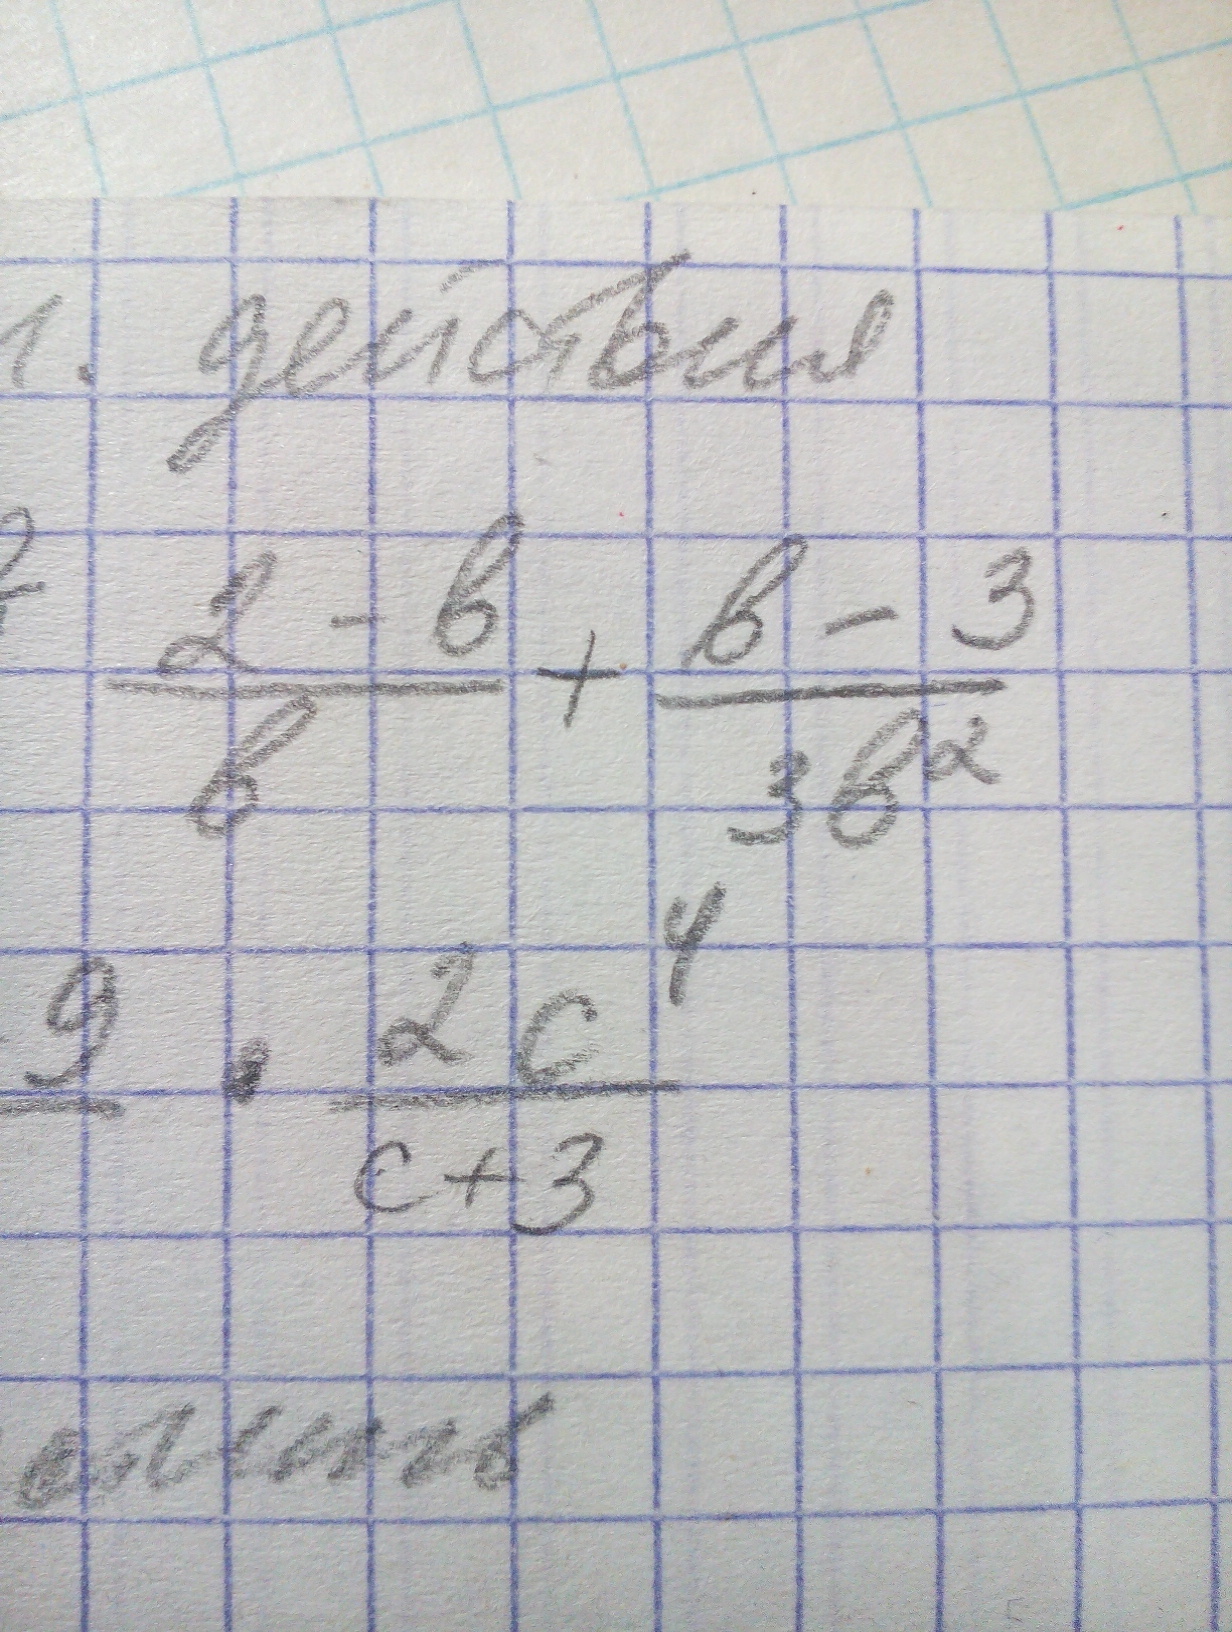 л. действия
2 - b / b + b - 3 / 3b²
9 · 2c⁴ / c+3